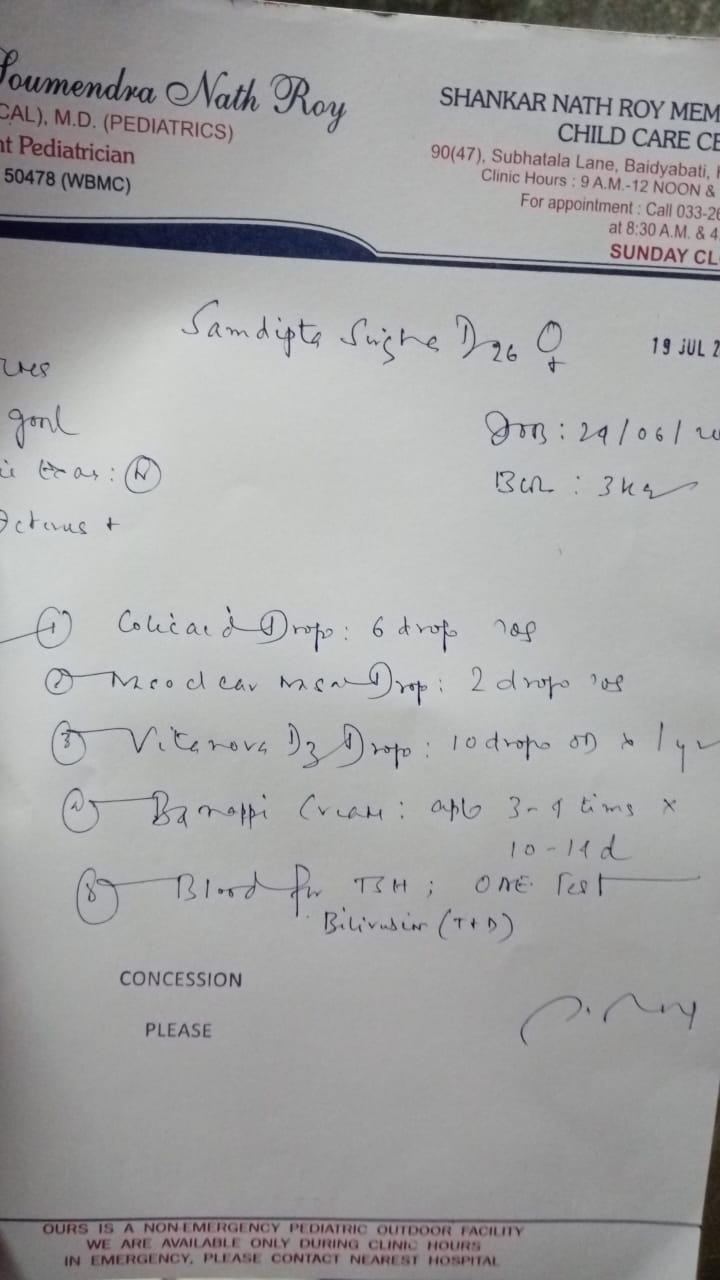 Soumendra Nath Roy
CAL), M.D. (PEDIATRICS)
nt Pediatrician
50478 (WBMC)
SHANKAR NATH ROY MEM
CHILD CARE CE
90(47), Subhatala Lane, Baidyabati, H
Clinic Hours : 9 A.M.-12 NOON &
For appointment : Call 033-26
at 8:30 A.M. & 4
SUNDAY CL
Samdipta D26 ♀
19 JUL 2
good
DOB: 29/06/20
: N
: 3kg
Icterus +
1 Colicaid Drop: 6 drop
2 Drop: 2 drop
3 Vitanova D3 Drop: 10 drops OD x 1 yr
4 Cream: 3-4 times x
10-14d
5 Blood for TSH; ONE Test
Bilirubin (T+D)
CONCESSION
PLEASE
OURS IS A NON-EMERGENCY PEDIATRIC OUTDOOR FACILITY
WE ARE AVAILABLE ONLY DURING CLINIC HOURS
IN EMERGENCY, PLEASE CONTACT NEAREST HOSPITAL